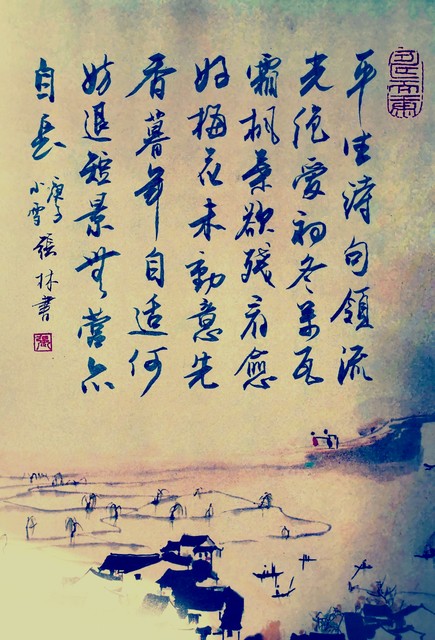 平生詩句領流
光絶愛初冬萬瓦
霜楓葉欲殘看愈
好梅花未動意先
香暮年自適何
妨退短景無營亦
自長
庚子
小雪 張林書